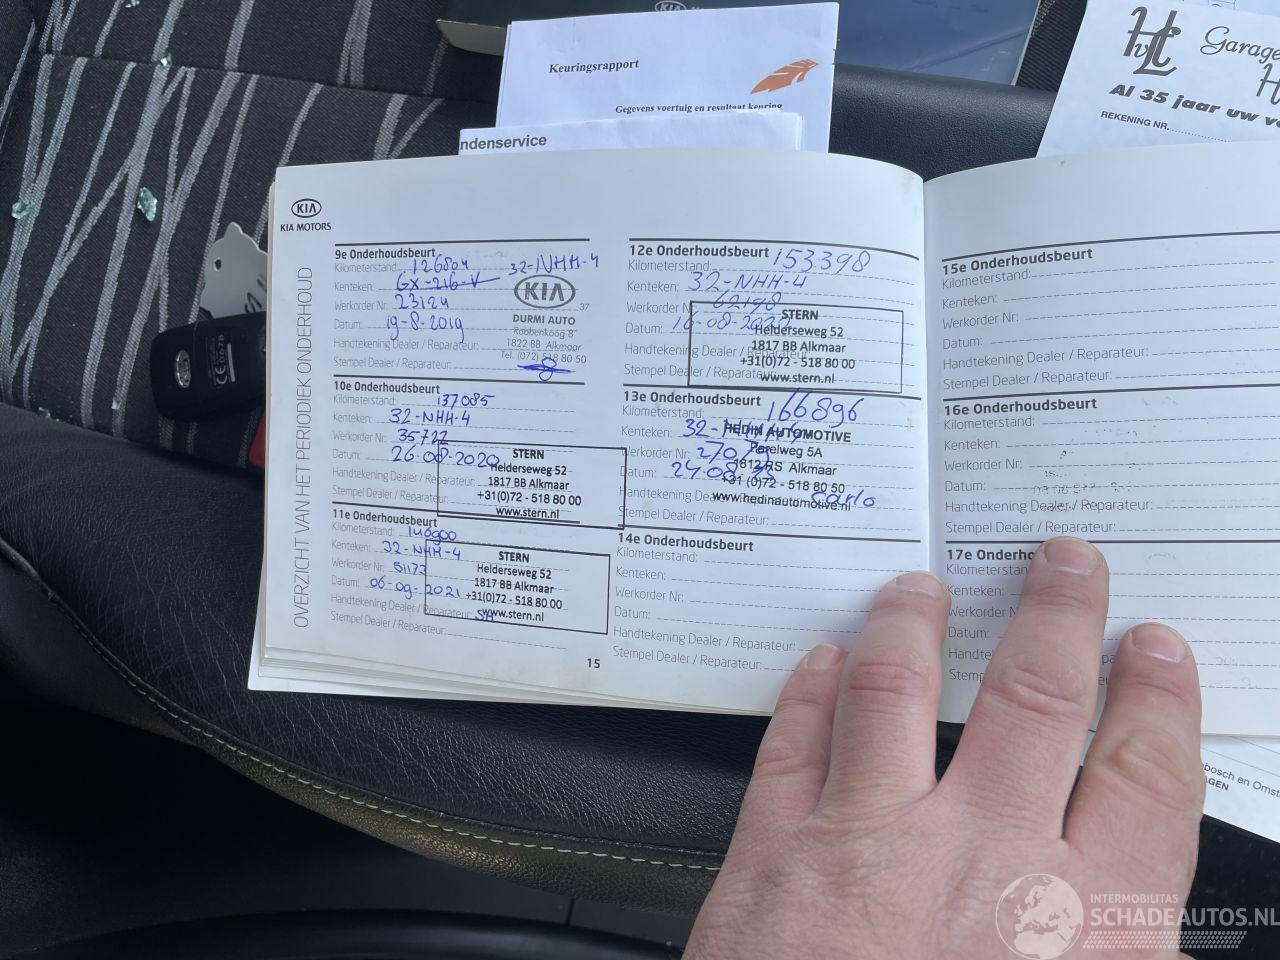 KIA
Keuringsrapport
Gegevens voertuig en resultaat keuring
ndenservice
HvLt
Garage
H
Al 35 jaar uw ve
REKENING NR.
KIA
KIA MOTORS
OVERZICHT VAN HET PERIODIEK ONDERHOUD
9e Onderhoudsbeurt
Kilometerstand: 126804 32-NHH-4
Kenteken: GX-216-V
Werkorder Nr: 23124
Datum: 19-8-2019
Handtekening Dealer / Reparateur:
Stempel Dealer / Reparateur:
KIA
37
DURMI AUTO
Robbenkoog 8
1822 BB Alkmaar
Tel. (072) 518 80 50
10e Onderhoudsbeurt
Kilometerstand: 137085
Kenteken: 32-NHH-4
Werkorder Nr: 35722
Datum: 26-08-2020
Handtekening Dealer / Reparateur:
Stempel Dealer / Reparateur:
STERN
Helderseweg 52
1817 BB Alkmaar
+31(0)72 - 518 80 00
www.stern.nl
11e Onderhoudsbeurt
Kilometerstand: 146900
Kenteken: 32-NHH-4
Werkorder Nr: 51173
Datum: 06-09-2021
Handtekening Dealer / Reparateur:
Stempel Dealer / Reparateur:
STERN
Helderseweg 52
1817 BB Alkmaar
+31(0)72 - 518 80 00
www.stern.nl
15
12e Onderhoudsbeurt
Kilometerstand: 153398
Kenteken: 32-NHH-4
Werkorder Nr: 62198
Datum: 16-08-2022
Handtekening Dealer / Reparateur:
Stempel Dealer / Reparateur:
STERN
Helderseweg 52
1817 BB Alkmaar
+31(0)72 - 518 80 00
www.stern.nl
13e Onderhoudsbeurt
Kilometerstand: 166896
Kenteken: 32-
Werkorder Nr:
Datum: 24-08
Handtekening Dealer / Reparateur: Carlo
Stempel Dealer / Reparateur:
HEDIN AUTOMOTIVE
Parelweg 5A
1812 RS Alkmaar
+31 (0)72 - 518 80 50
www.hedinautomotive.nl
14e Onderhoudsbeurt
Kilometerstand:
Kenteken:
Werkorder Nr:
Datum:
Handtekening Dealer / Reparateur:
Stempel Dealer / Reparateur:
15e Onderhoudsbeurt
Kilometerstand:
Kenteken:
Werkorder Nr:
Datum:
Handtekening Dealer / Reparateur:
Stempel Dealer / Reparateur:
16e Onderhoudsbeurt
Kilometerstand:
Kenteken:
Werkorder Nr:
Datum:
Handtekening Dealer / Reparateur:
Stempel Dealer / Reparateur:
17e Onderho
Kilometerstand
Kenteken:
Werkorder Nr:
Datum:
Handte
Stemp
bosch en Omst
AGEN
INTERMOBILITAS
SCHADEAUTOS.NL